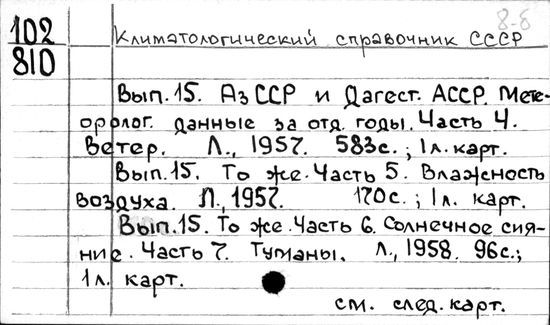 8-8
102
810
Климатологический справочник СССР
Вып. 15. АзССР и Дагест. АССР. Мете-
оролог. данные за отд. годы. Часть 4.
Ветер. Л., 1957. 583с.; 1л. карт.
Вып. 15. То же. Часть 5. Влажность
воздуха. Л., 1957. 170с.; 1л. карт.
Вып. 15. То же. Часть 6. Солнечное сия-
ние. Часть 7. Туманы. Л., 1958. 96с.;
1л. карт.
см. след. карт.